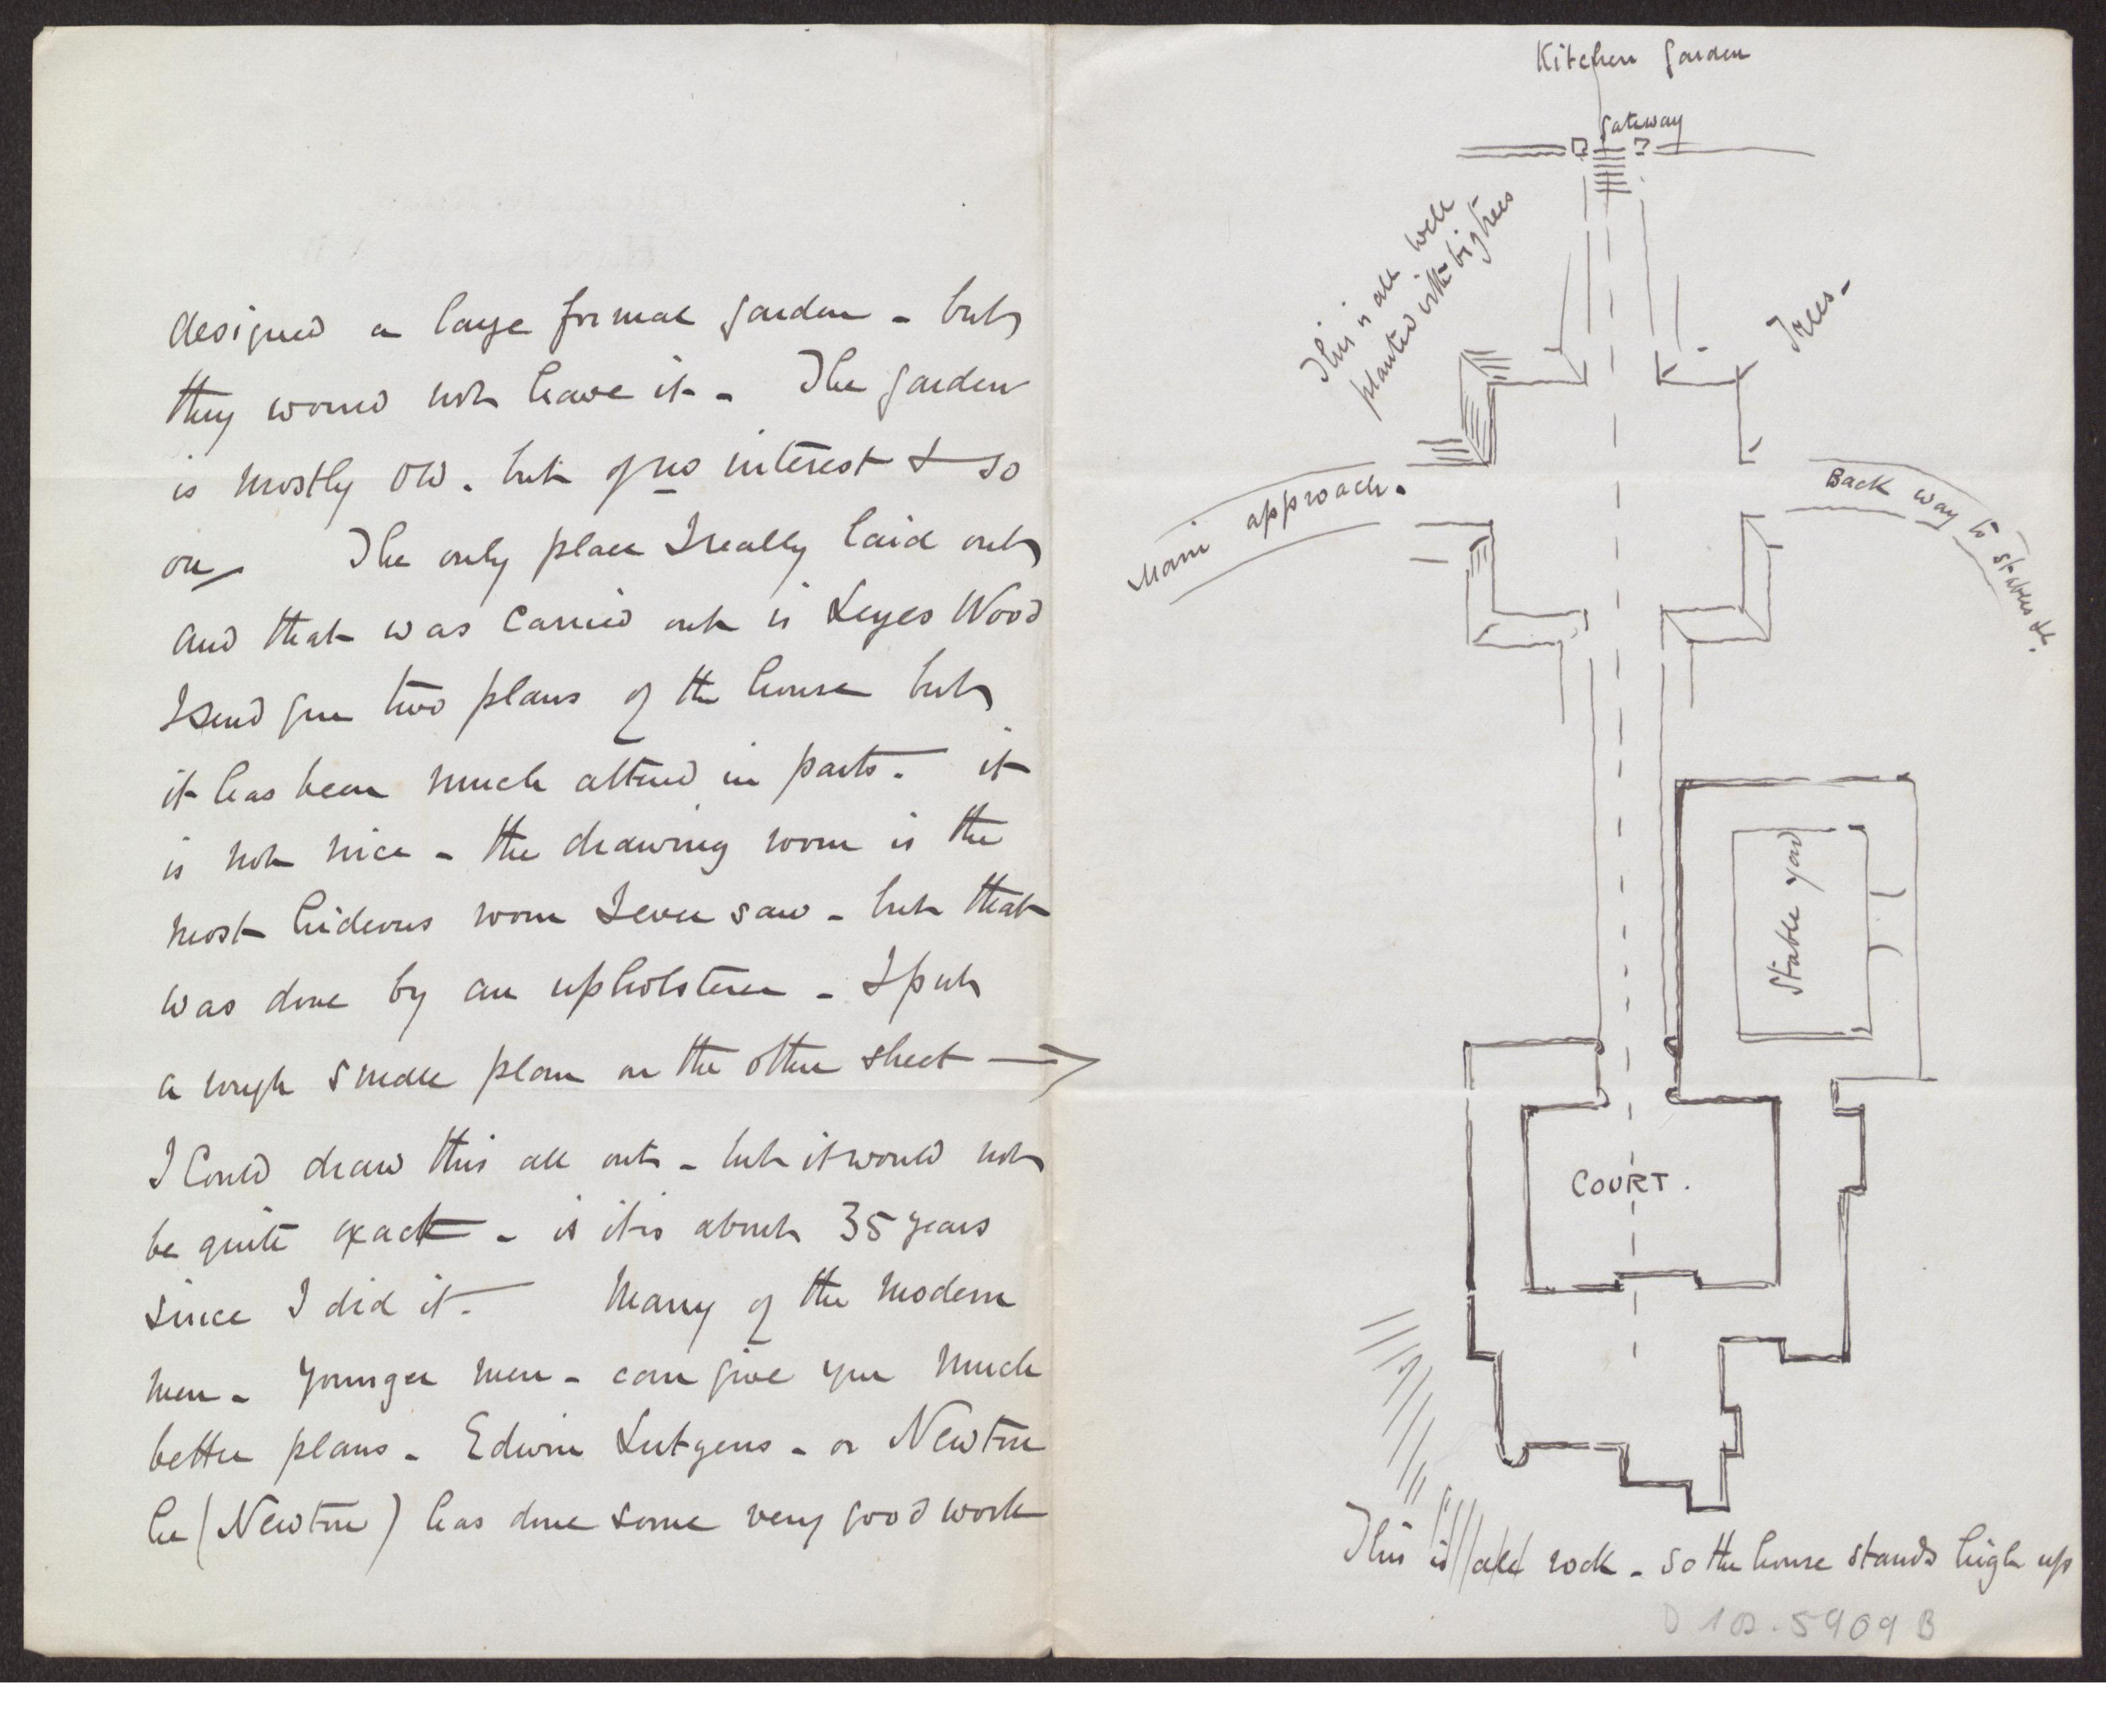 designed a large formal garden - but
they would not have it - The garden
is mostly old. but of no interest & so
on The only place I really laid out
and that was carried out is Leyes Wood
I send you two plans of the house but
it has been much altered in parts - it
is not nice - the drawing room is the
most hideous room I ever saw - but that
was done by an upholsterer - I put
a rough small plan on the other sheet
I could draw this all out - but it would not
be quite exact - is it is about 35 years
since I did it - Many of the modern
men - younger men - can give you much
better plans - Edwin Lutyens - or Newton
he (Newton) has done some very good work
Kitchen garden
gateway
This is all well
planted with big trees
Trees -
Main approach.
Back way to stables &c.
Stable yard
COURT.
This is all rock - so the house stands high up
D 102.5909 B